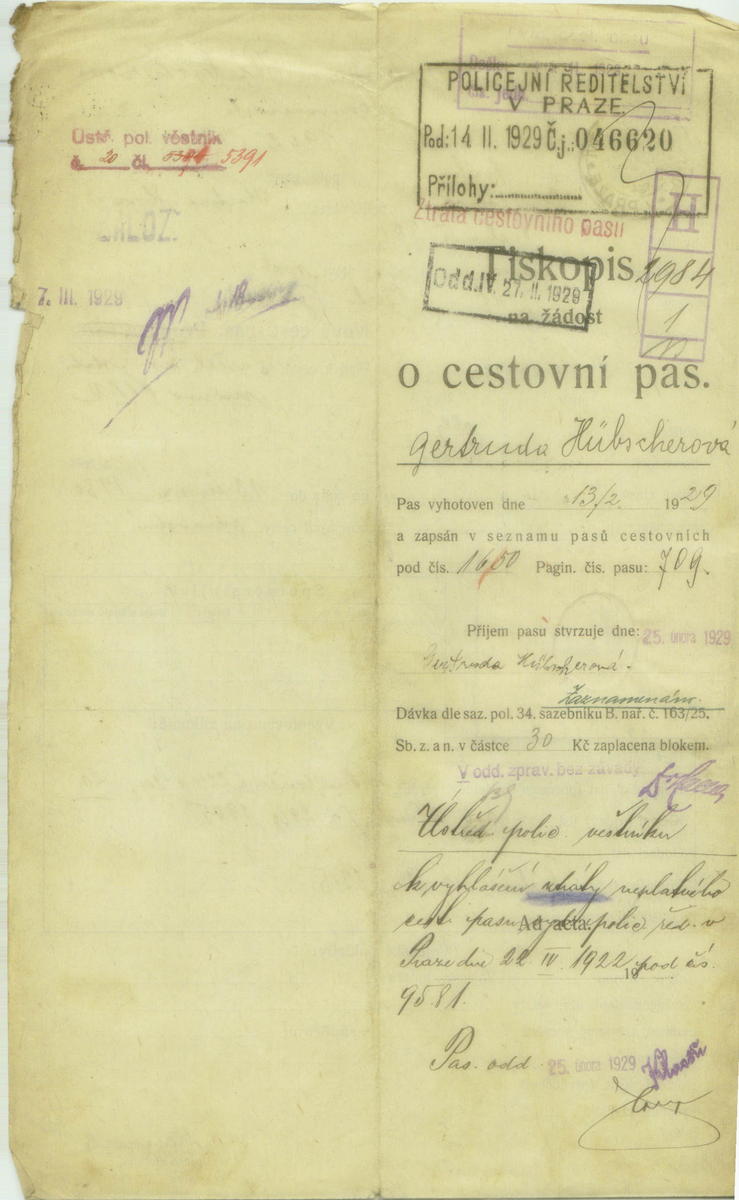 Ústř. pol. věstník
č. 20 čl. 5391
ULOZ.
7. III. 1929
POLICEJNÍ ŘEDITELSTVÍ
V PRAZE
Pod: 14 II. 1929 Č.j.: 046620
Přílohy:
Ztráta cestovního pasu
H
Tiskopis 2984
Odd. IV. 27. II. 1929
na žádost
1
o cestovní pas.
Gertruda Hübscherová
Pas vyhotoven dne 13/2. 1929
a zapsán v seznamu pasů cestovních
pod čís. 1650 Pagin. čís. pasu: 709.
Příjem pasu stvrzuje dne: 25. února 1929
Gertruda Hübscherová.
Zaznamenáno.
Dávka dle saz. pol. 34. sazebníku B. nař. č. 163/25.
Sb. z. a n. v částce 30 Kč zaplacena blokem.
V odd. zprav. bez závady
Ústřed. polic. věstníku
k vyhlášení ztráty neplatného
cest. pasu polic. řed. v
Ad acta.
Praze dne 22 IV. 1922 pod čís.
19
9581.
Pas. odd. 25. února 1929